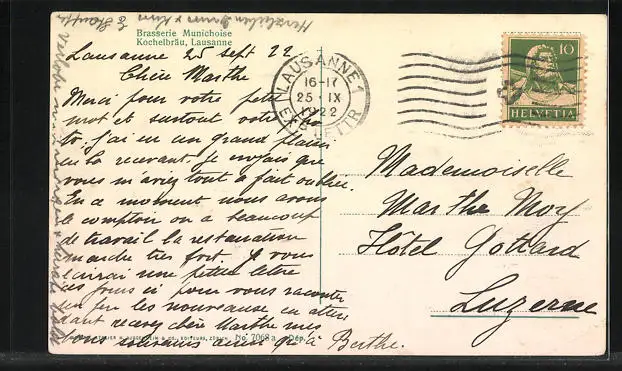 Brasserie Munichoise
Kochelbräu, Lausanne
Lausanne 25 sept 22
Chère Marthe
Merci pour votre petit
mot et surtout votre
j'ai eu un grand plaisir
en la recevant. Je croyais que
vous m'aviez tout à fait oubliée.
En ce moment nous avons
le comptoir on a beaucoup
de travail la restauration
marche très fort. Je vous
écrirai une petite lettre
ces jours ci pour vous raconter
un peu les nouveaux en atten
dant recevez chère Marthe mes
bons
Berthe.
LAUSANNE 1
16-17
25 IX
1922
EXP. LETTR
10
HELVETIA
Mademoiselle
Marthe Moy
Hôtel Gottard
Luzerne
& CO., EDITEURS, ZÜRICH. No. 7068 a Dép.